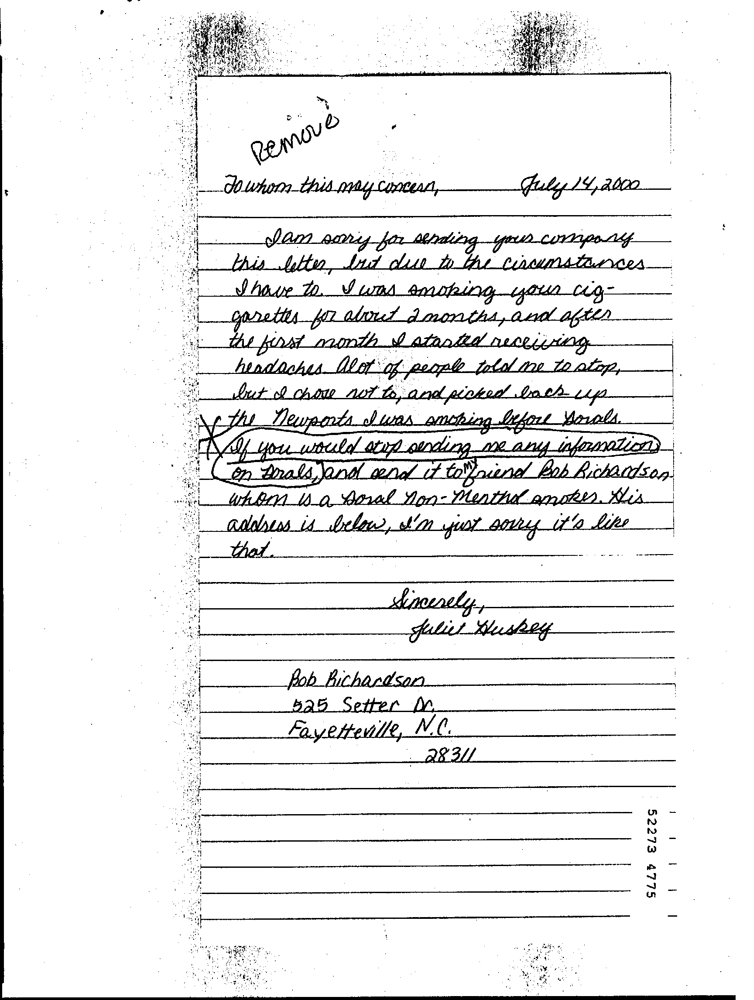 Remove
To whom this may concern, July 14, 2000
I am sorry for sending your company
this letter, but due to the circumstances
I have to. I was smoking your cig-
garettes for about 2 months, and after
the first month I started receiving
headaches. Alot of people told me to stop,
but I chose not to, and picked back up
the Newports I was smoking before Dorals.
If you would stop sending me any information
on Dorals, and send it to my friend Bob Richardson
whom is a Doral Non-Menthol smoker. His
address is below, I'm just sorry it's like
that.
Sincerely,
Juliet Huskey
Bob Richardson
525 Setter Dr.
Fayetteville, N.C.
28311
52273 4775